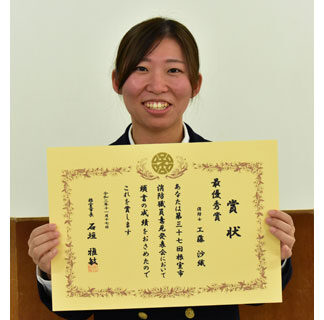 賞状
最優秀賞
消防士 工藤 沙織
あなたは第三十七回根室市
消防職員意見発表会において
頭書の成績をおさめたので
これを賞します
根室市長 石垣 雅敏